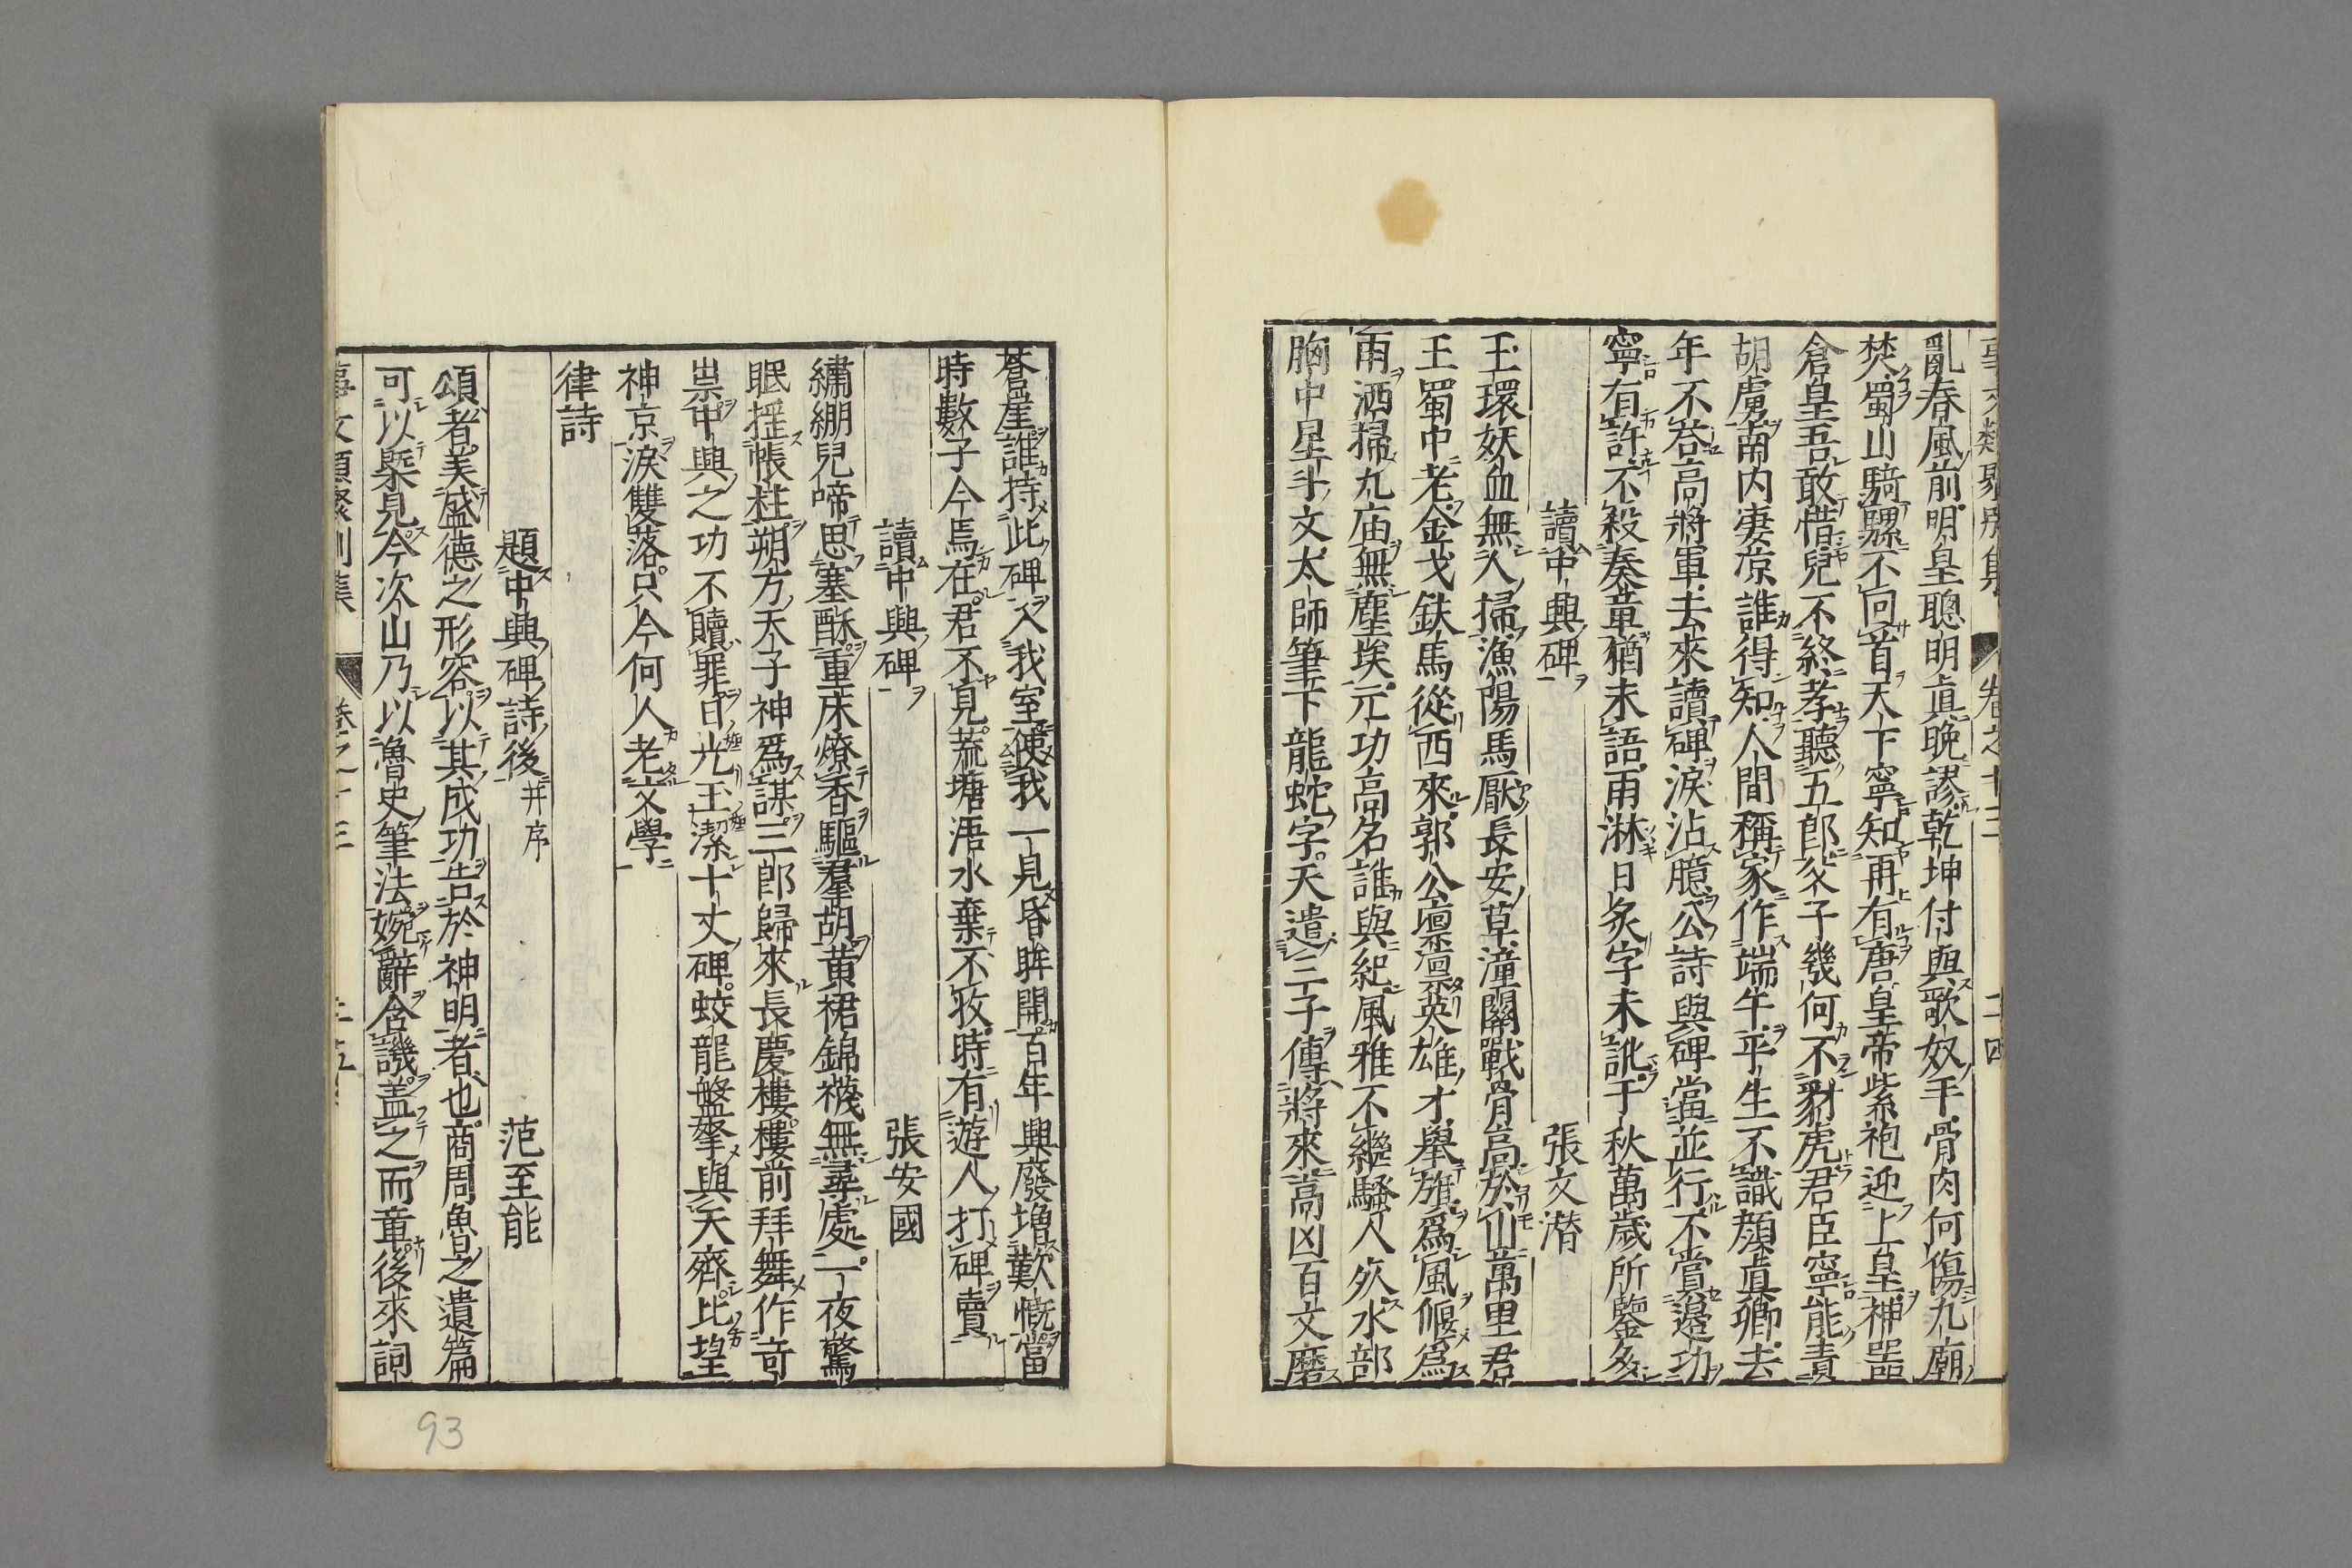 亂春風前明皇聰明真晚謬乾坤付與歌奴手骨肉何傷九廟
焚蜀山騎騾不回首天下寧知再有唐皇帝紫袍迎上皇神器
倉皇吾敢惜兒不終孝聽五郎父子幾何不豺虎君臣寧能責
胡虜南内凄涼誰得知人間稱家作端午平生不識顔真卿去
年不答高將軍去來讀碑淚沾臆公詩與碑當並行不賞邊功
寧有許不殺奏章猶未語雨淋日炙字未訛千秋萬歲所鑒多
讀中興碑 張文潛
玉環妖血無人掃漁陽馬厭長安草潼關戰骨高於山萬里君
王蜀中老金戈鉄馬從西來郭公凛凛英雄才舉旗爲風偃爲
雨洒掃九庙無塵埃元功高名誰與紀風雅不繼騷人死水部
胸中星斗文太師筆下龍蛇字天遣二子傳將來高山百丈磨
蒼崖誰持此碑入我室使我一見昏眸開百年興廢増歎慨當
時數子今焉在君不見荒塘浯水棄不收時有遊人打碑賣
讀中興碑 張安國
繡綳兒啼思塞酥重床燎香驅羣胡黄裙錦襪無尋處一夜驚
眠揺帳柱朔方天子神爲謀三郎歸來長慶樓樓前拜舞作奇
祟中興之功不贖罪日光玉潔十丈碑蛟龍盤拏與天齊北望
神京淚雙落只今何人老文學
律詩
題中興碑詩後并序 范至能
頌者美盛德之形容以其成功告於神明者也商周魯之遺篇
可以槩見今次山乃以魯史筆法婉辭含譏盖之而章後來詞
93